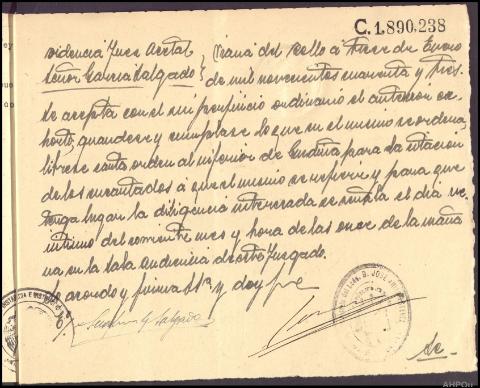 C.1,890,238
videncia Juez Acctal } Viana del Bollo a trece de Enero
Señor Garcia Salgado } de mil novecientos cuarenta y tres.
Se acepta con el sin perjuicio ordinario el anterior ex-
horto, guardese y cumplase lo que en el mismo se ordena,
librese carta orden al inferior de Gudiña para la citación
de los encartados a que el mismo se refiere y para que
tenga lugar la diligencia interesada se señala el dia
del corriente mes y hora de las once de la maña
na en la Sala Audiencia de este Juzgado.
Lo acordo y firma Sª y doy fe
Salgado
AHPOu